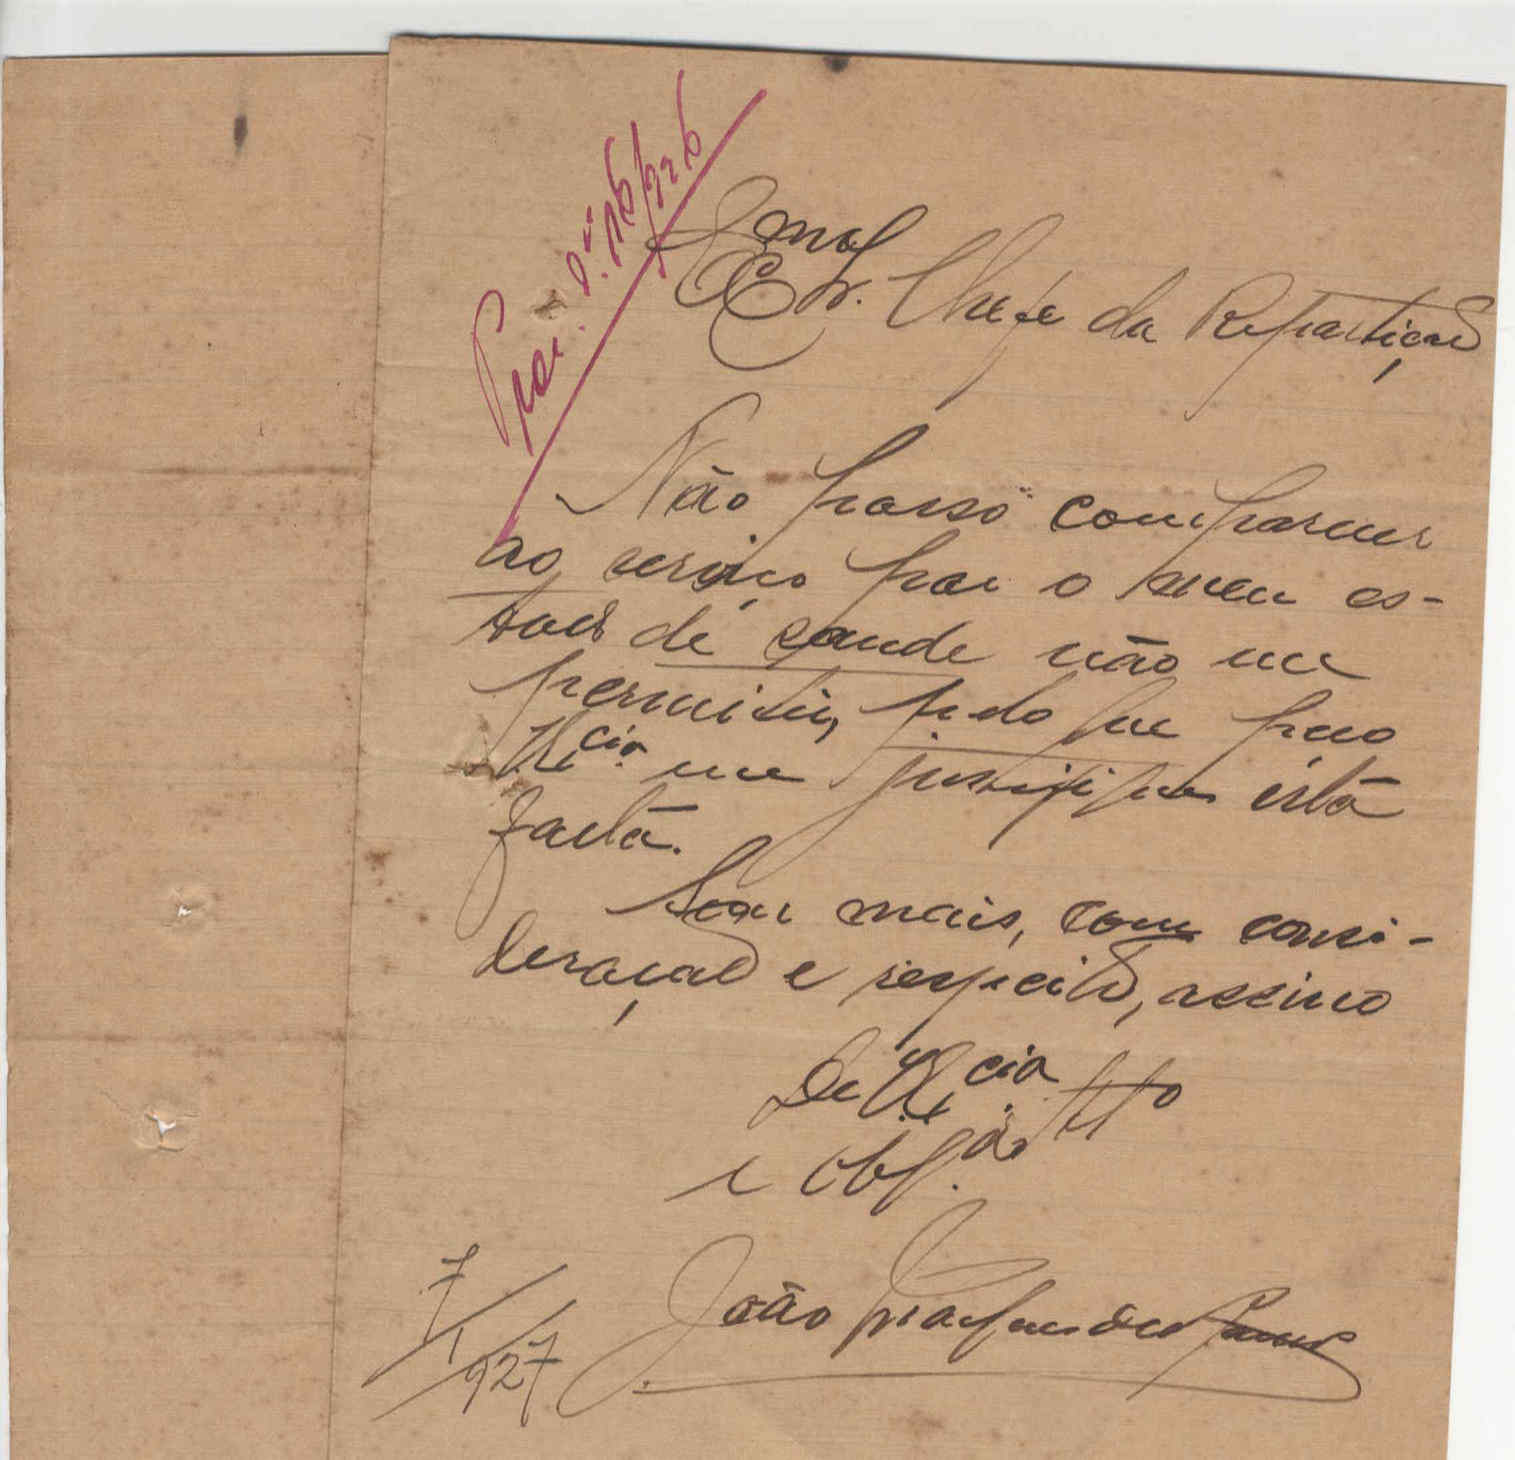 Proc. nº. 116/926
Exmo
Sr. Chefe da Repartição
Não posso comparecer
ao serviço por o meu es-
tado de saude não me
permitir, pelo que peço
V. Ex.cia me justifique esta
falta.
Sem mais, com consi-
deração e respeito, assino
De V. Ex.cia Atto
e Obg.do
João
7/1/927